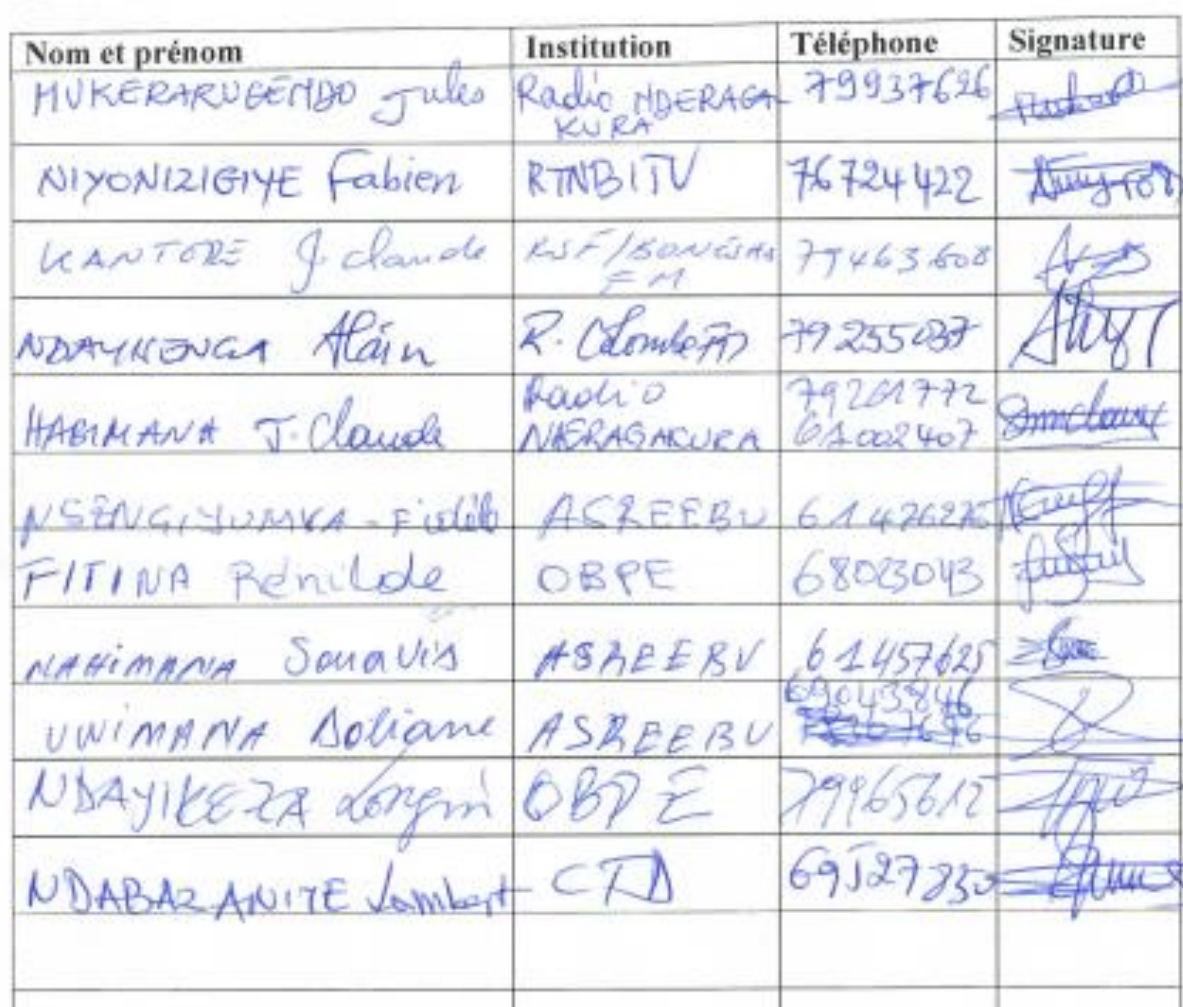 Nom et prénom Institution Téléphone Signature
MUKERARUGENDO Jules Radio NDERAGA- 79937626
KURA
NIYONIZIGIYE Fabien RTNB/TV 76724422
KANTORE J. Claude RSF/BONESHA 79463608
FM
NDAYIKENGA Alain R. Colombe FM 79255087
HABIMANA J. Claude Radio 79261772
NDERAGAKURA 61002407
NSENGIYUMVA - Fidèle ASREEBU 61426276
FITINA Rénilde OBPE 68023043
NAHIMANA Souavis ASREEBU 61457625
UWIMANA Doliane ASREEBU 69043846
NDAYIKEZA Longin OBPE 79965612
NDABARANIYE Lambert CTD 69527830